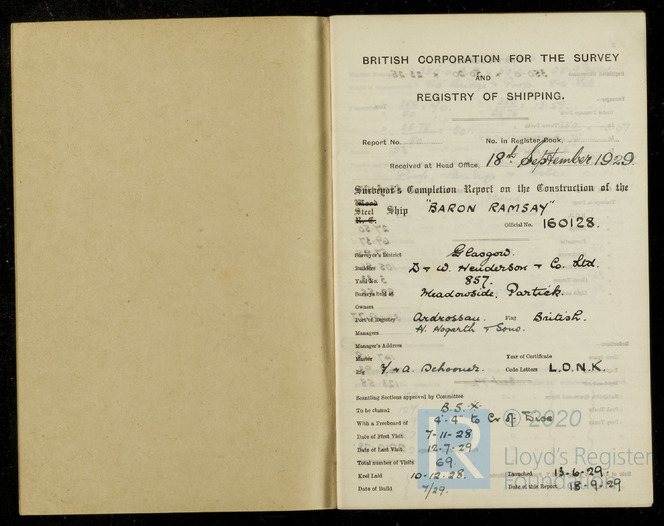 BRITISH CORPORATION FOR THE SURVEY
AND
REGISTRY OF SHIPPING.
Report No. No. in Register Book,
Received at Head Office, 18th September 1929.
Surveyor's Completion Report on the Construction of the
Wood
Steel Ship "BARON RAMSAY"
R. C.
Official No. 160128.
Surveyor's District Glasgow.
Builders D & W. Henderson & Co. Ltd.
Yard No. 857.
Surveys held at Meadowside, Partick.
Owners
Port of Registry Ardrossan. Flag British.
Managers H. Hogarth & Sons.
Manager's Address
Master Year of Certificate
Rig F & A. Schooner. Code Letters L.D.N.K.
Scantling Sections approved by Committee
To be classed B.S.*
With a Freeboard of 4'-4" to Cr of Disc
Date of First Visit 7-11-28
Date of Last Visit 12-7-29
Total number of Visits 69.
Keel Laid 10-12-28. Launched 13-6-29.
Date of Build 7/29. Date of this Report 18-9-29
© 2020
Lloyd's Register
Foundation